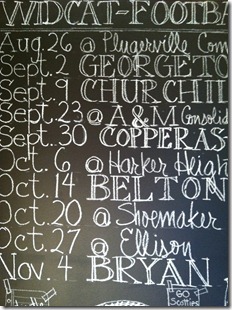 WIDCAT-FOOTBA
Aug. 26 @ Plugerville Com
Sept. 2 GEORGETO
Sept. 9 CHURCHIL
Sept. 23 @ A&M Consolid
Sept. 30 COPPERAS
Oct. 6 @ Harker Heigh
Oct. 14 BELTON
Oct. 20 @ Shoemaker
Oct. 27 @ Ellison
Nov. 4 BRYAN
GO
Scotties